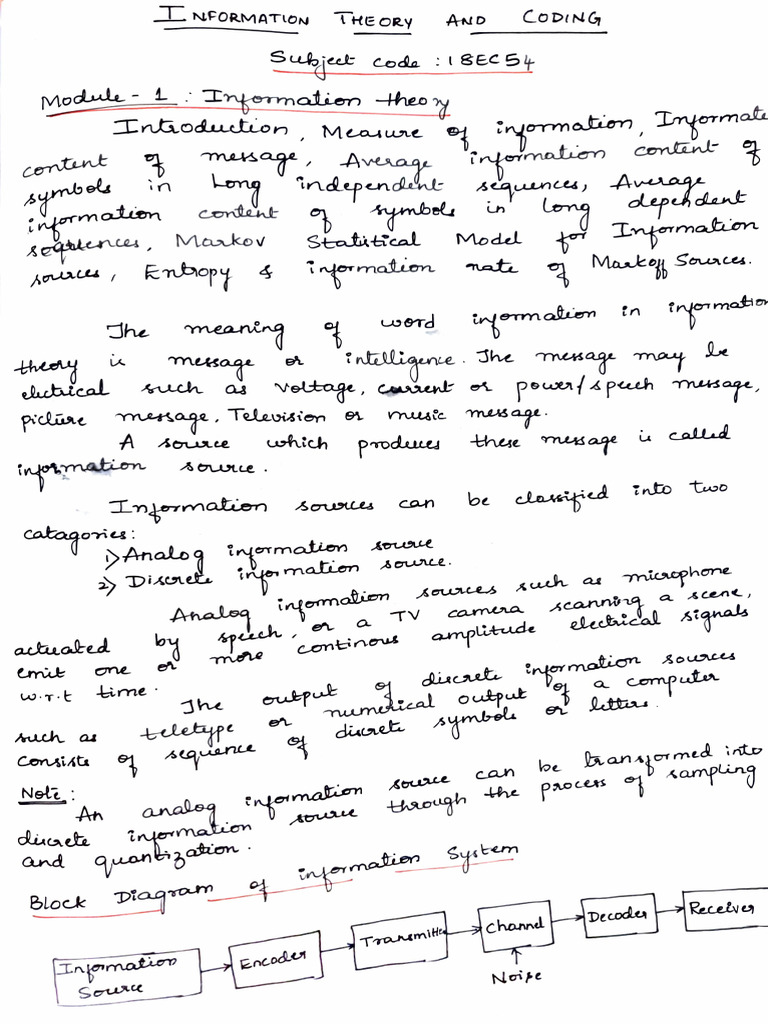 INFORMATION THEORY AND CODING
Subject code : 18EC54
Module - 1 : Information theory
Introduction, Measure of information, Informat
content of message, Average information content of
symbols in Long independent sequences, Average
information content of symbols in long dependent
sequences, Markov Statistical Model for Information
sources, Entropy & information rate of Markoff Sources.
The meaning of word information in information
theory is message or intelligence. The message may be
electrical such as voltage, current or power/speech message,
picture message, Television or music message.
A source which produces these message is called
information source.
Information sources can be classified into two
catagories:
1) Analog information source
2) Discrete information source.
Analog information sources such as microphone
actuated by speech, or a TV camera scanning a scene,
emit one or more continous amplitude electrical signals
w.r.t time.
The output of discrete information sources
such as teletype or numerical output of a computer
consists of sequence of discrete symbols or letters.
Note :
An analog information source can be transformed into
discrete information source through the process of sampling
and quantization.
Block Diagram of information System
Information Source
Encoder
Transmitte
Channel
Decoder
Receiver
Noise